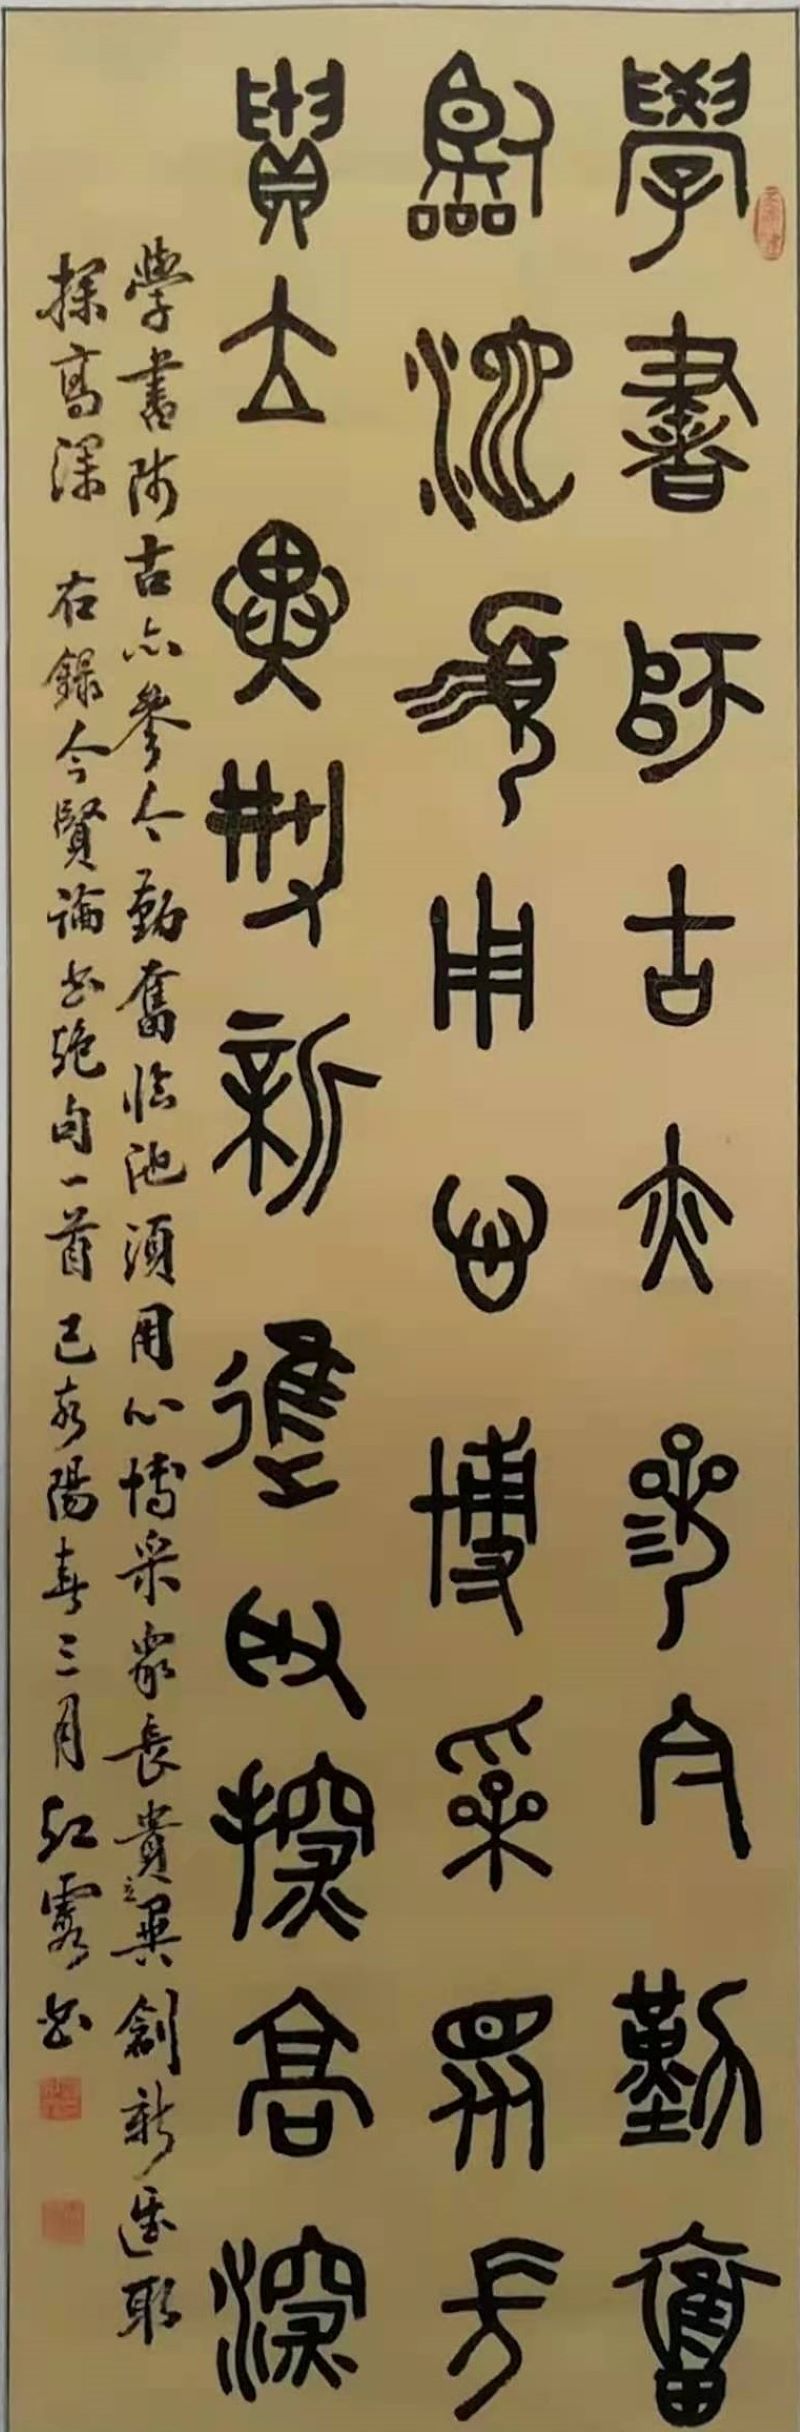 學書師古亦參今勤奮
臨池須用心博采眾長
貴立異創新進取探高深
學書師古亦參今勤奮臨池須用心博采眾長貴立異創新進取
探高深 右錄今賢論書絕句一首 己亥陽春三月紅霞書